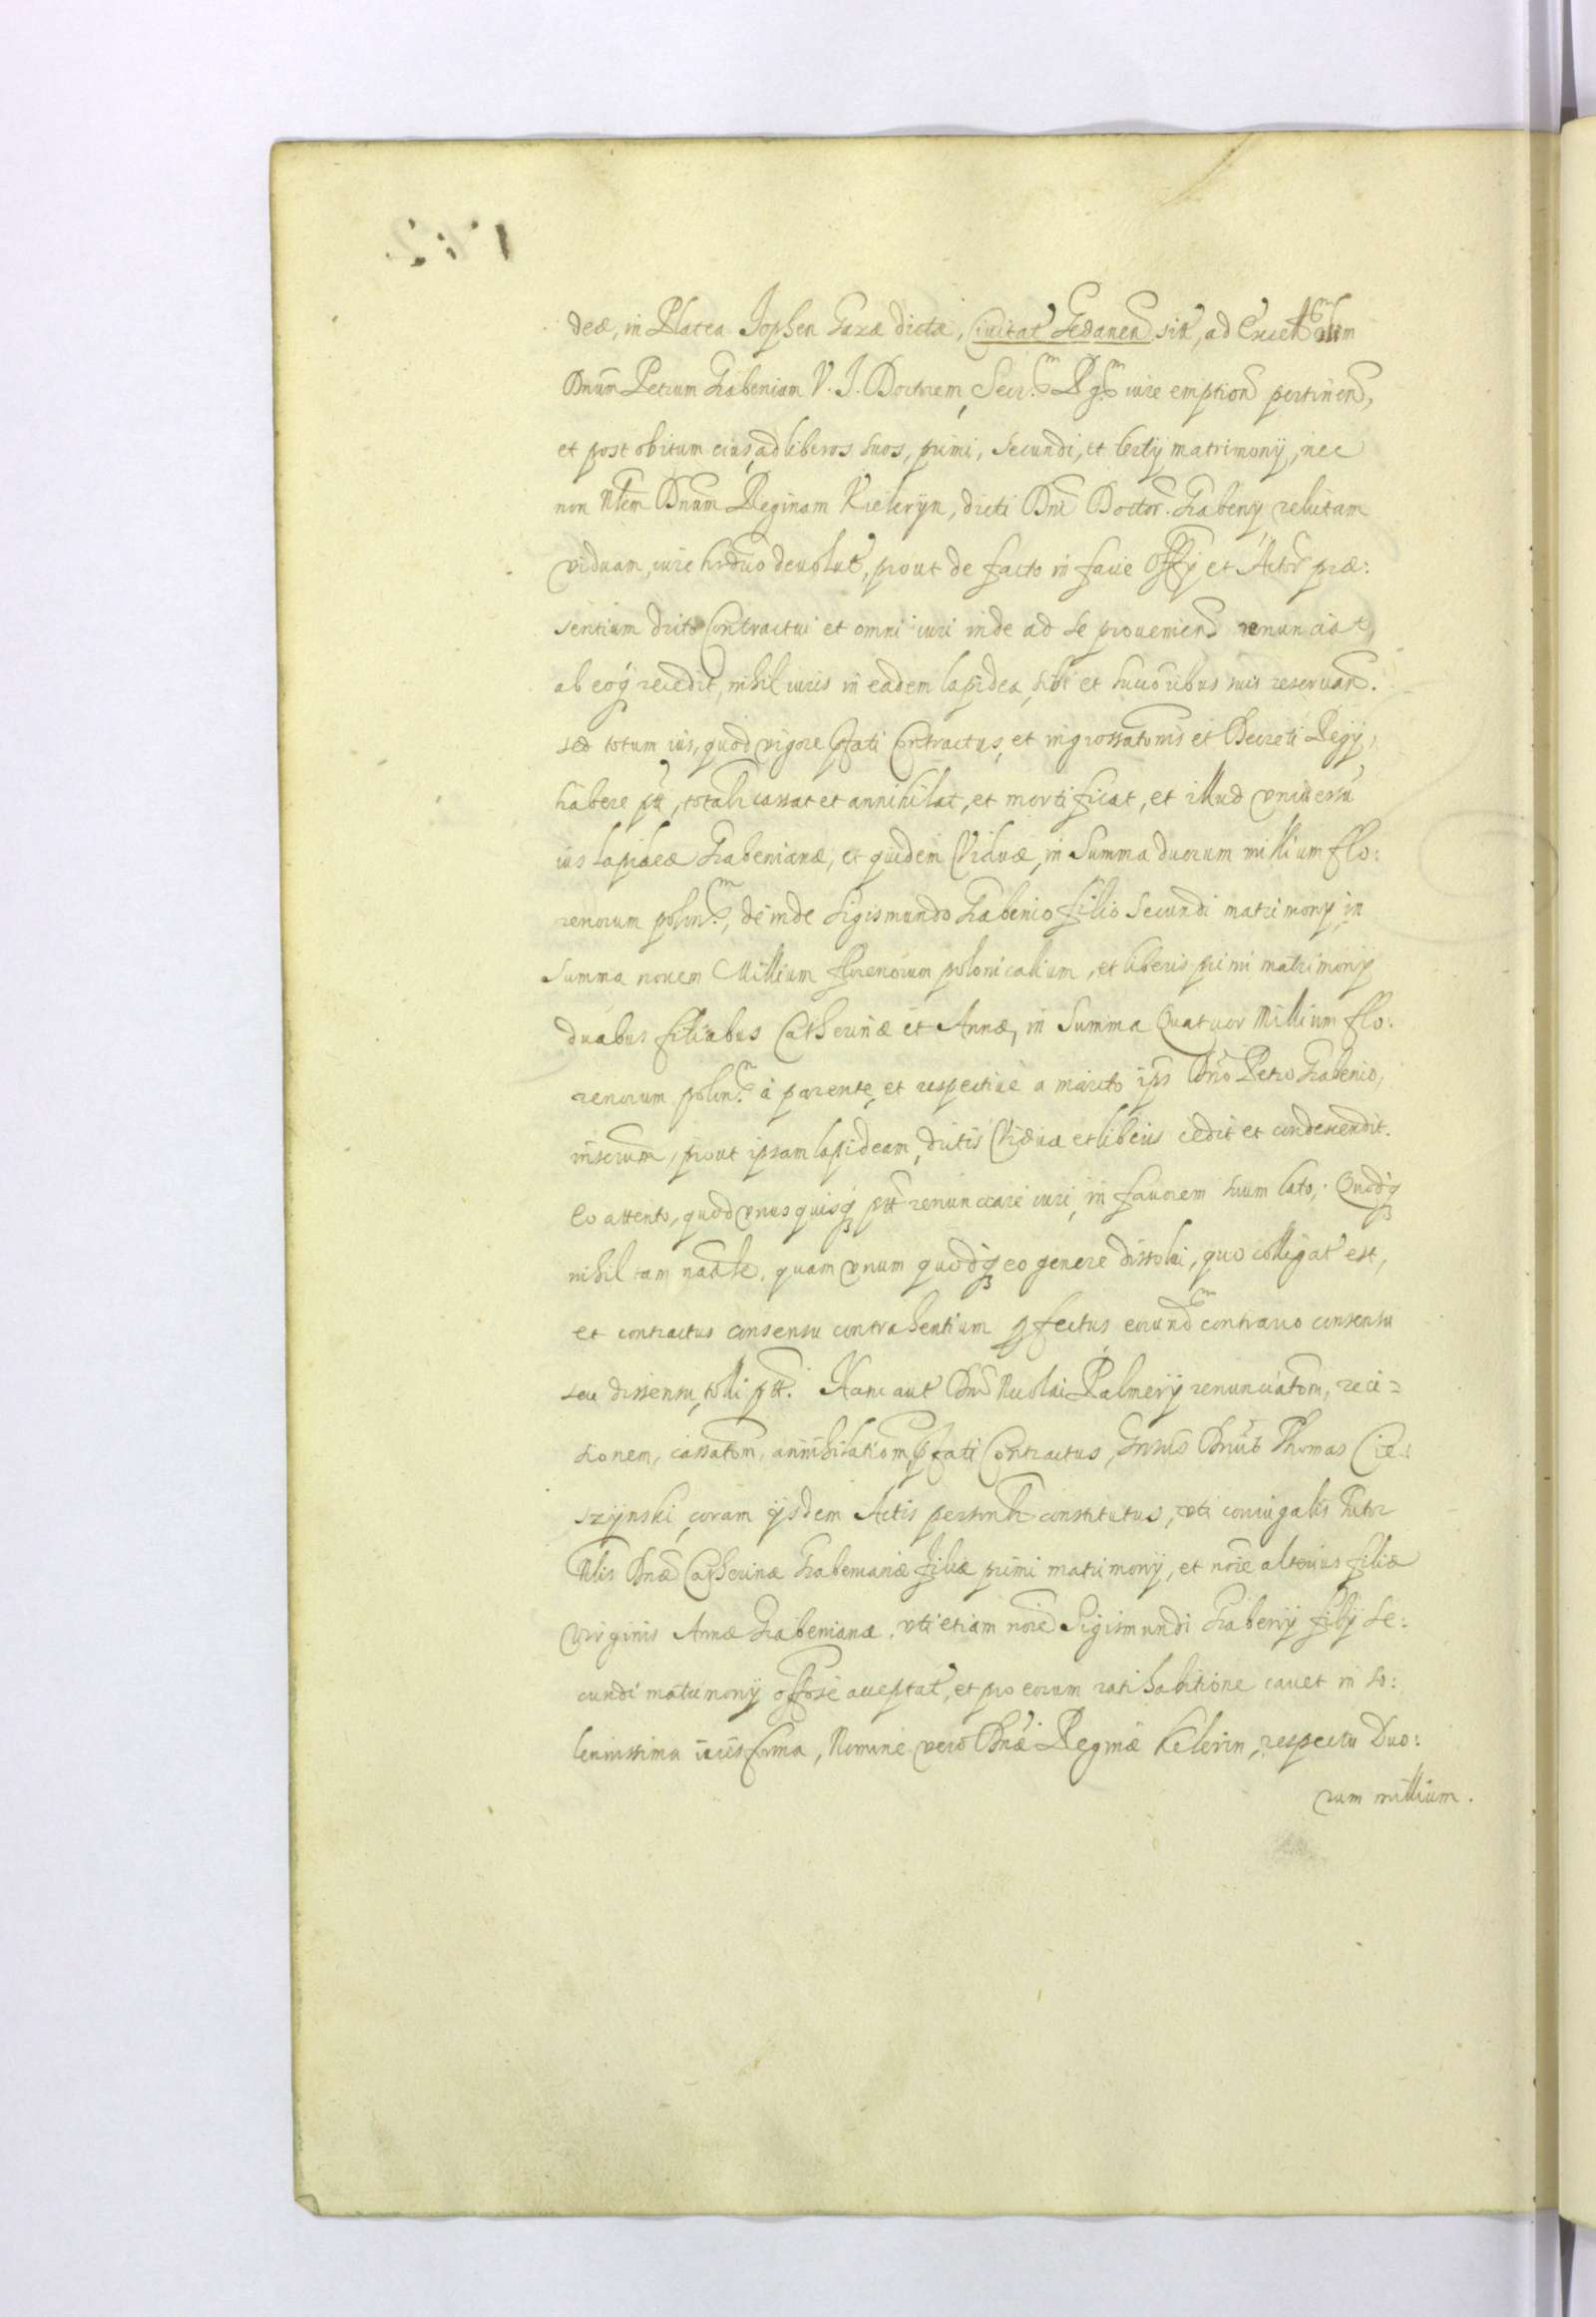 deæ, in Platea Jophen Gaza dicta, Civitat Gedanen sit, ad Excell
Dnum Petrum Grabeniam V. J. Doctorem, Secr. Rg. iure emption pertinen,
et post obitum eius, ad liberos suos, primi, secundi, et tertij matrimonij, nec
non Nlem Dnam Reginam Kieleryn, dicti Dni Doctor. Grabenij relictam
viduam, iure hrdrio devolut, prout de facto in facie Offij et Actor præ:
sentium dicto Contractui et omni iuri inde ad se provenien renunciat,
ab eoq recedit, nihil iuris in eadem lapidea, sibi et succoribus suis reservan.
sed totum ius, quod vigore pfati Contractus, et ingrossationis et Decreti Regij,
habere ptt, totalr cassat et annihilat, et mortificat, et illud universu
ius lapideæ Grabenianæ, et quidem Viduæ, in Summa duorum millium flo:
renorum polon., deinde Sigismundo Grabenio filio Secundi matrimonij, in
Summa novem Millium florenorum polonicalium, et liberis primi matrimonij
duabus filiabus Catherinæ et Annæ, in Summa Quatuor Millium flo:
renorum polon. à parente, et respective a marito ipso Dno Petro Grabenio,
inscrium, prout ipsam lapideam, dictis Viduæ et liberis cedit et condescendit.
Eo attento, quod unusquisq ptt renunciare iuri, in favorem suum lato, Quodq
nihil tam nale, quam unum quodq eo genere dissolui, quo colligat est,
et contractus consensu contrahentium pfectus, eorund contrario consensu
seu dissensu, tolli ptt. Hanc aut Dni Nicolai Palmerij renunciatom, reci=
sionem, cassatom, annihilationem pfati Contractus, Gnsus Dnus Thomas Cie:
szynski, coram ijsdem Actis personlr constitutus, uti coniugalis tutor
Nlis Dnæ Catherinæ Grabenianæ filiæ primi matrimonij, et noie alterius filiæ
virginis Annæ Grabenianæ, uti etiam noie Sigismundi Grabenij filij Se:
cundi matrimonij offose acceptat, et pro eorum rati habitione cavet in so:
lennissima iuris forma, Nomine vero Dnæ Reginæ Kelerin, respectu Duo:
rum millium.